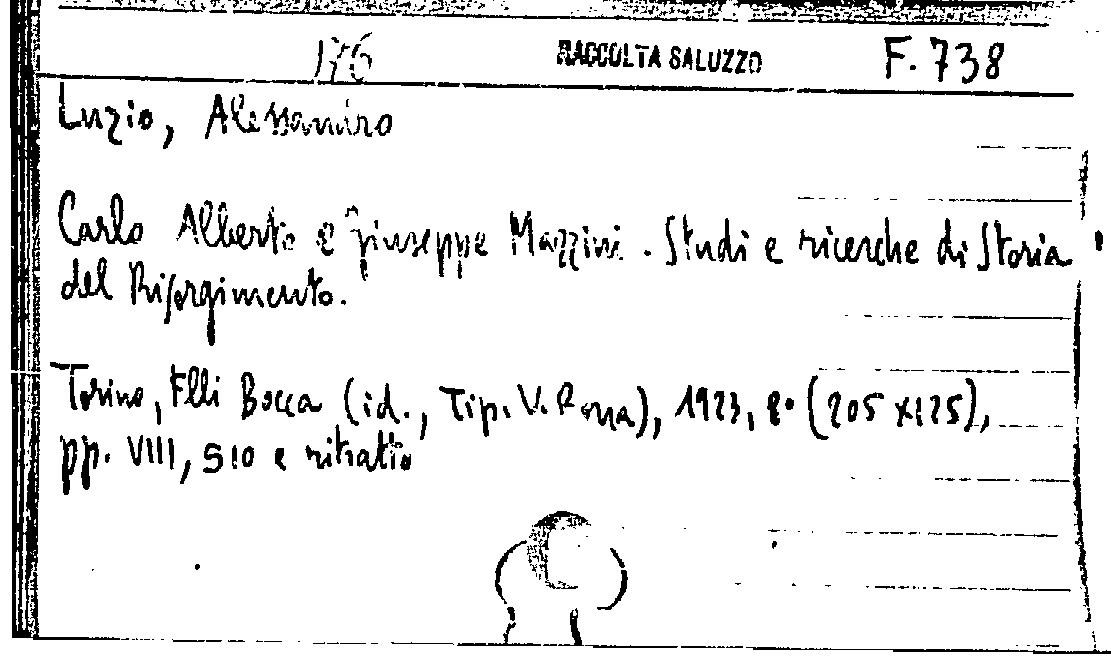 176 RACCOLTA SALUZZO F. 738
Luzio, Alessandro
Carlo Alberto e Giuseppe Mazzini. Studi e ricerche di Storia
del Risorgimento.
Torino, F.lli Bocca (id., Tip. V. Bona), 1923, 8° (205 x125),
pp. VIII, 510 e ritratto